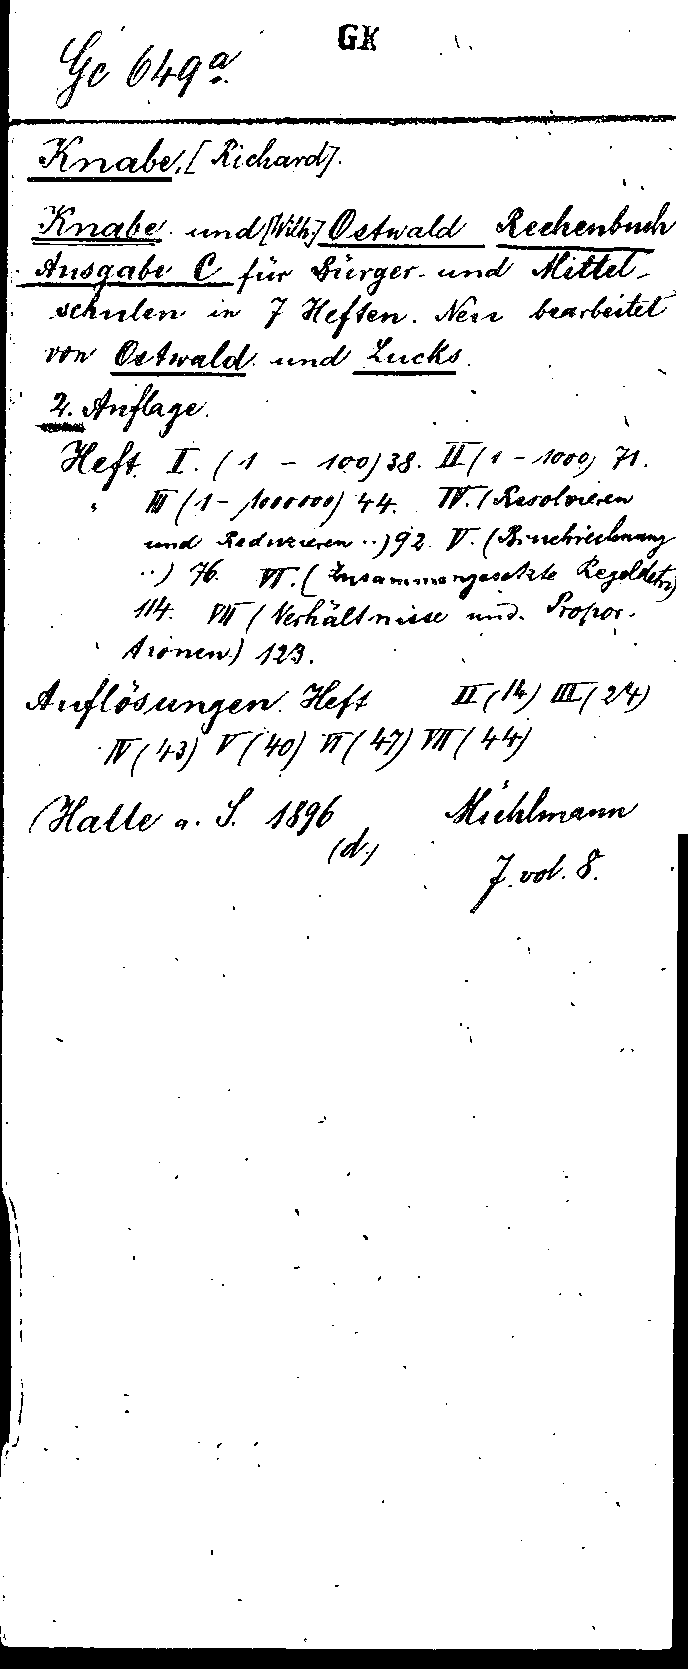 GK
Gc 649a.
Knabe, [Richard].
Knabe und [Wilh.] Ostwald Rechenbuch
Ausgabe C für Bürger- und Mittel-
schulen in 7 Heften. Neu bearbeitet
von Ostwald und Lucks.
2. Auflage.
Heft I. (1 - 100) 38. II (1 - 1000) 71.
" III (1 - 1000000) 44. IV. (Resolvieren
und Reduzieren ..) 92. V. (Bruchrechnung
..) 76. VI. (Zusammengesetzte Regeldetri)
114. VII (Verhältnisse und Propor-
tionen) 123.
Auflösungen. Heft II (14) III (24)
IV (43) V (40) VI (47) VII (44)
(Halle a. S. 1896 Mühlmann
(d.)
7. vol. 8.